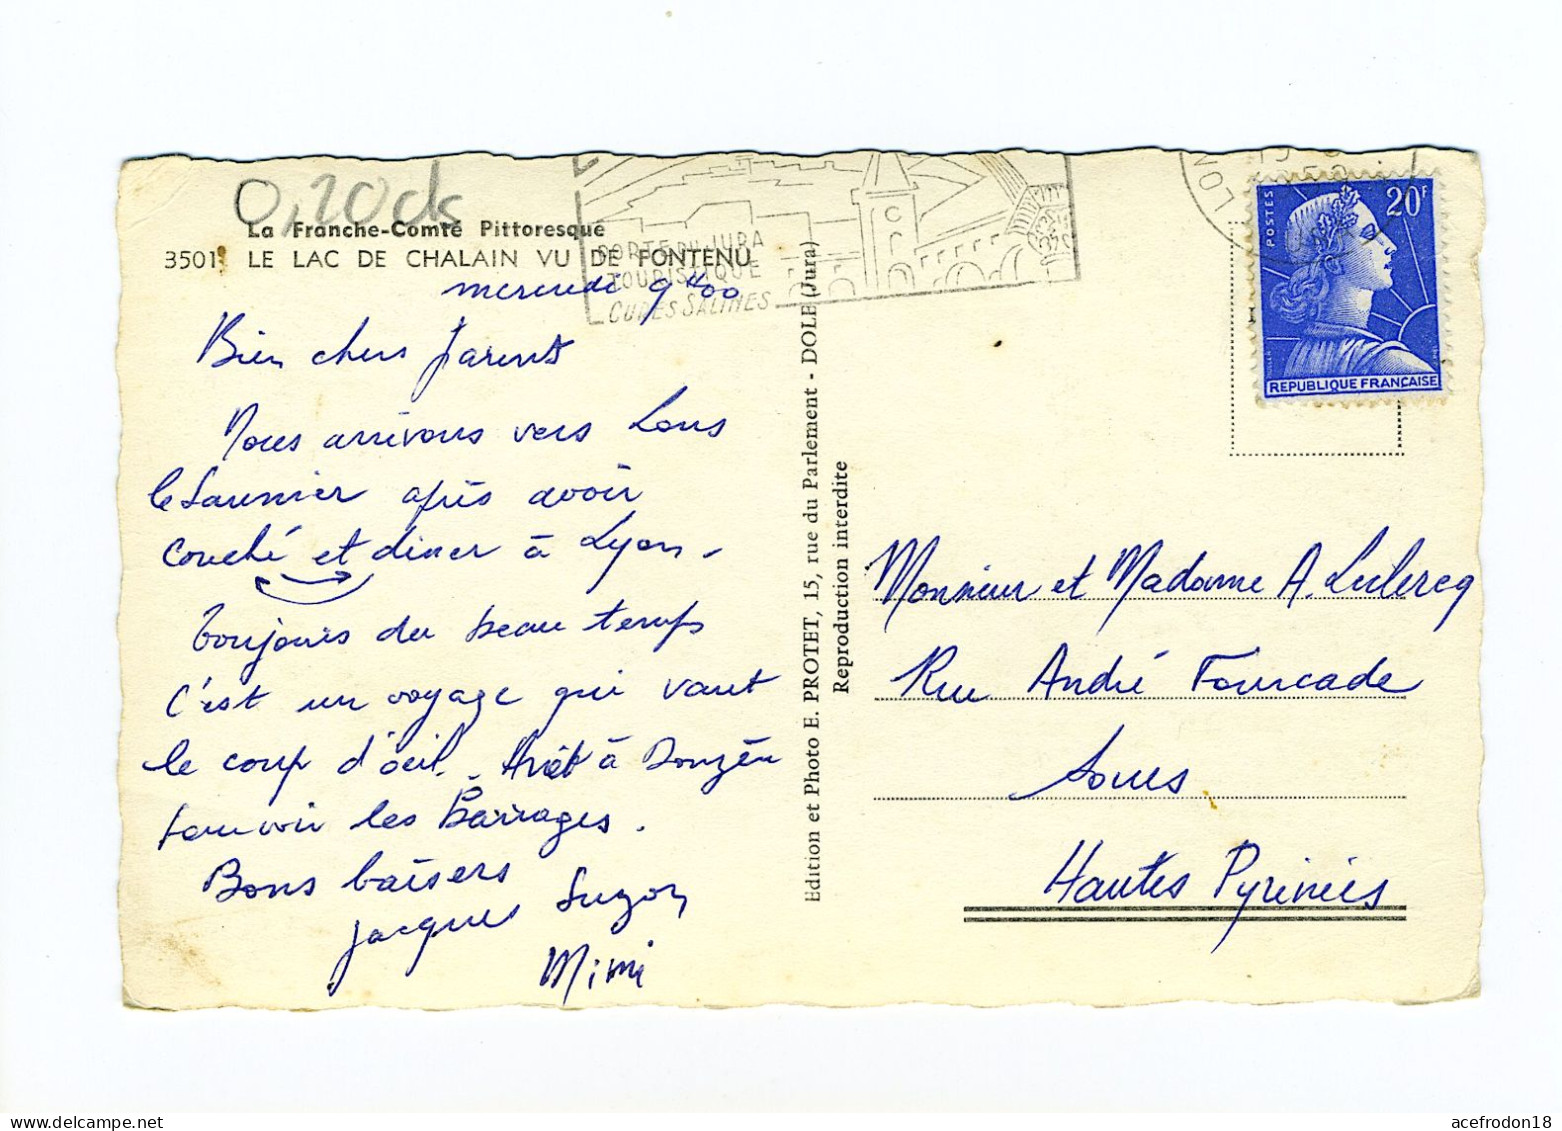 0,20 ck
La Franche-Comté Pittoresque
3501 LE LAC DE CHALAIN VU DE FONTENU
PORTE DU JURA
TOURISTIQUE
CURES SALINES
LON
20F
POSTES
REPUBLIQUE FRANÇAISE
mercredi 9h00
Bien chers Parents
Nous arrivons vers Lons
le Saunier après avoir
couché et diner à Lyon.
Toujours du beau temps
C'est un voyage qui vaut
le coup d'oeil. Arrêt à Donzère
pour voir les Barrages.
Bons baisers
Jacques Suzon
Mimi
Edition et Photo E. PROTET, 15, rue du Parlement - DOLE (Jura)
Reproduction interdite
Monsieur et Madame A. Leclercq
Rue André Fourcade
Soues
Hautes Pyrénées
acefrodon18